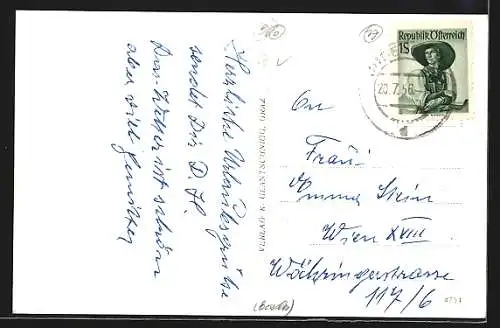 Herzliche Urlaubsgrüße
sendet Dir D. H.
Das Wetter ist schön
aber viel Gewitter
VERLAG K. GLANTSCHNIGG, GRAZ
An
Frau
Emma Stein
Wien XVIII
Währingerstrasse
117/6
Republik Österreich
1S
20.7.56